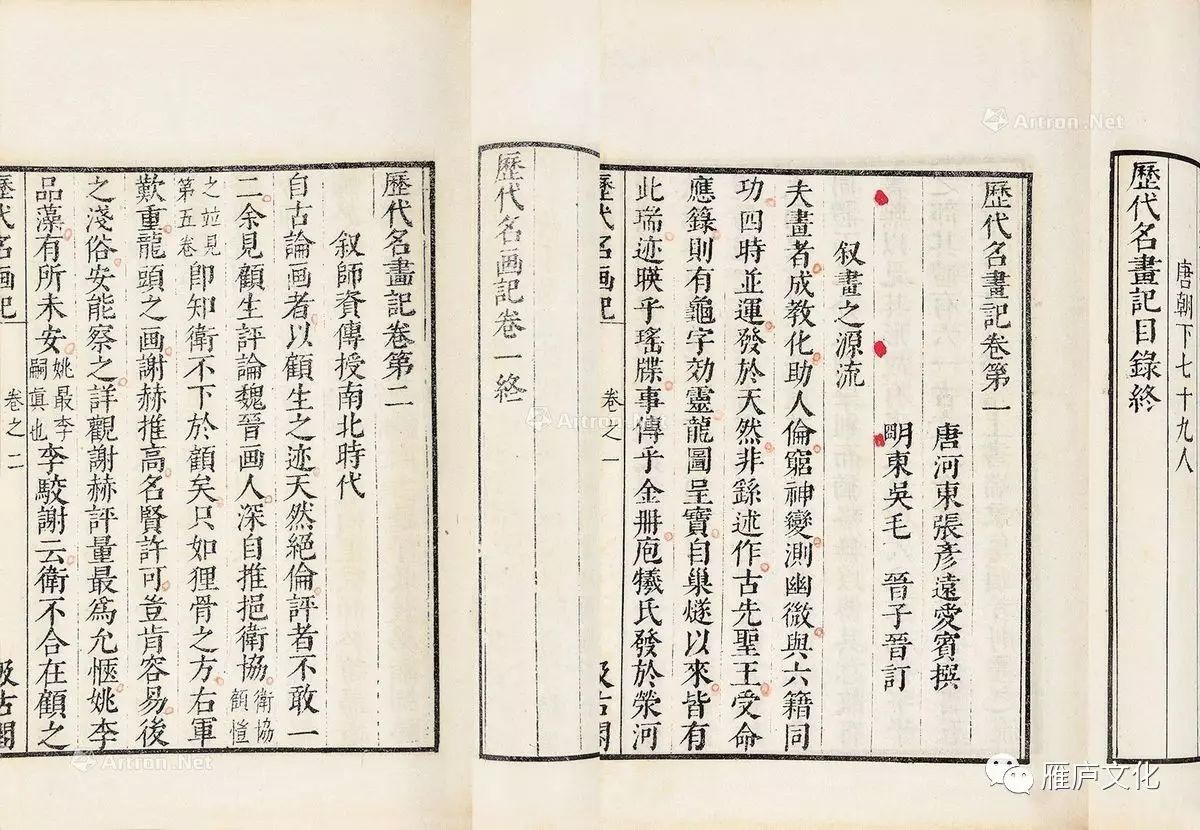 唐朝下七十九人
歷代名畫記目錄終
歷代名畫記卷第一
唐河東張彥遠愛賓撰
明東吳毛 晉子晉訂
叙畫之源流
夫畫者成教化助人倫窮神變測幽微與六籍同
功四時並運發於天然非繇述作古先聖王受命
應籙則有龜字効靈龍圖呈寶自巢燧以來皆有
此瑞迹暎乎瑤牒事傳乎金冊庖犧氏發於滎河
歷代名画記
卷之一
汲古閣
歷代名画記卷一終
歷代名畫記卷第二
叙師資傳授南北時代
自古論画者以顧生之迹天然絕倫評者不敢一
二余見顧生評論魏晉画人深自推挹衛協衛協顧愷
之並見第五卷即知衛不下於顧矣只如狸骨之方右軍
歎重龍頭之画謝赫推高名賢許可豈肯容易後
之淺俗安能察之詳觀謝赫評量最為允愜姚李
品藻有所未安姚最李嗣真也李駮謝云衛不合在顧之
歷代名画記
卷之二
汲古閣
Artron.Net
Artron.Net
Artron.Net
雁庐文化